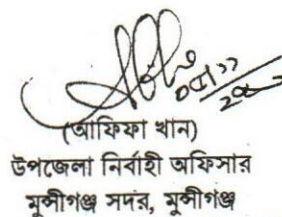 (আফিফা খান)
উপজেলা নির্বাহী অফিসার
মুন্সীগঞ্জ সদর, মুন্সীগঞ্জ